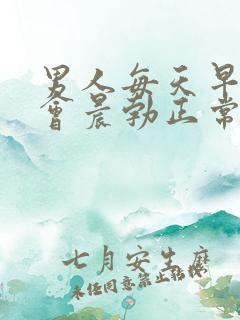 男人每天早
会晨勃正常
七月安生麽
未经同意禁止转